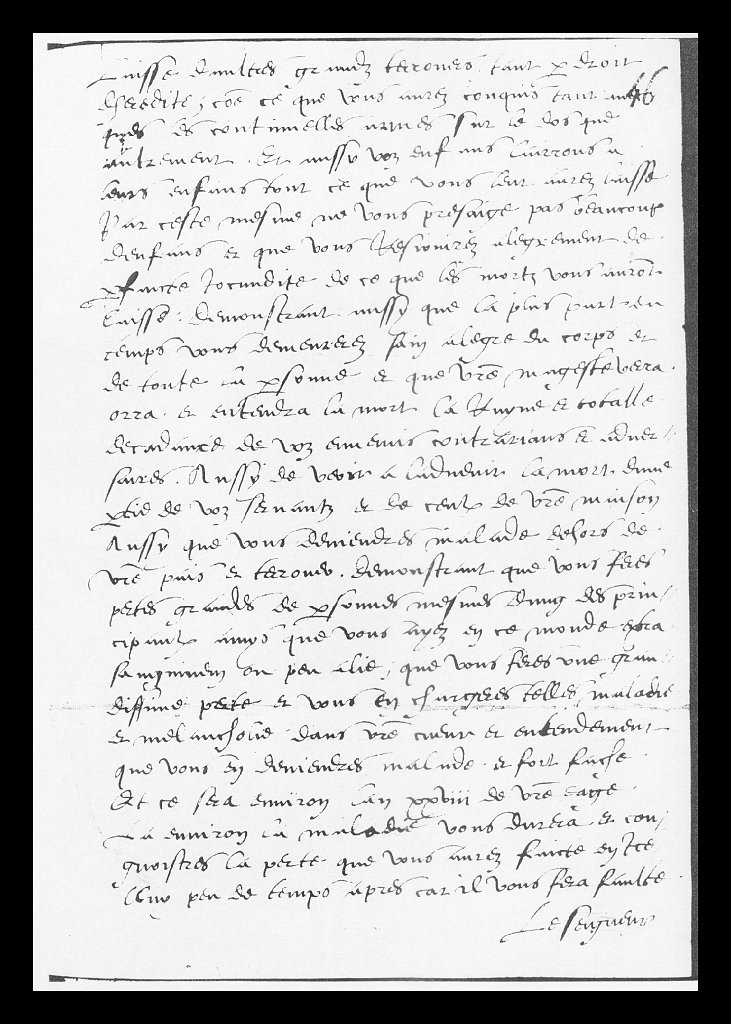 Laisse daultres grandz terrouers tant p droit
dheredite, cõe ce que vous aurez conquis tant
ques es continuelles armes sur le dos que
aultrement. Et aussy voz enfans lairrons a
leurs enfans tout ce que vous leur aurez laisse
Par ceste mesme ne vous presaige pas beaucoup
denfans et que vous Resiouirez alegrement de
pfaicte Jocundite de ce que les mortz vous auront
laisse. demonstrant aussy que la plus part ren
temps vous demeurerez sain alegre du corps et
de toute la psonne et que vre mageste verra.
orra. et entendra la mort la Ruyne et totalle
decadance de voz ennemis contrarians et adver-
saires. Aussy de veoir a ladvenir la mort dune
ptie de voz servantz et de ceulx de vre maison
Aussy que vous deviendres malade dehors de
vre pais et terrouer. demonstrant que vous feres
pertes grandes de psonnes mesmes dung des prin-
cipaulx amys que vous ayez en ce monde extra
sanguinem ou peu alie, que vous feres une gran-
dissime perte et vous en chargeres telles maladie
et melancholie dans vre cueur et entendement
que vous en deviendres malade. et fort fache.
Et ce sera environ lan xxviii de vre eage.
La environ la maladie vous durera et con-
gnoistres la perte que vous aurez faicte en Ice
lluy peu de temps apres car il vous fera faulte
Le seigneur